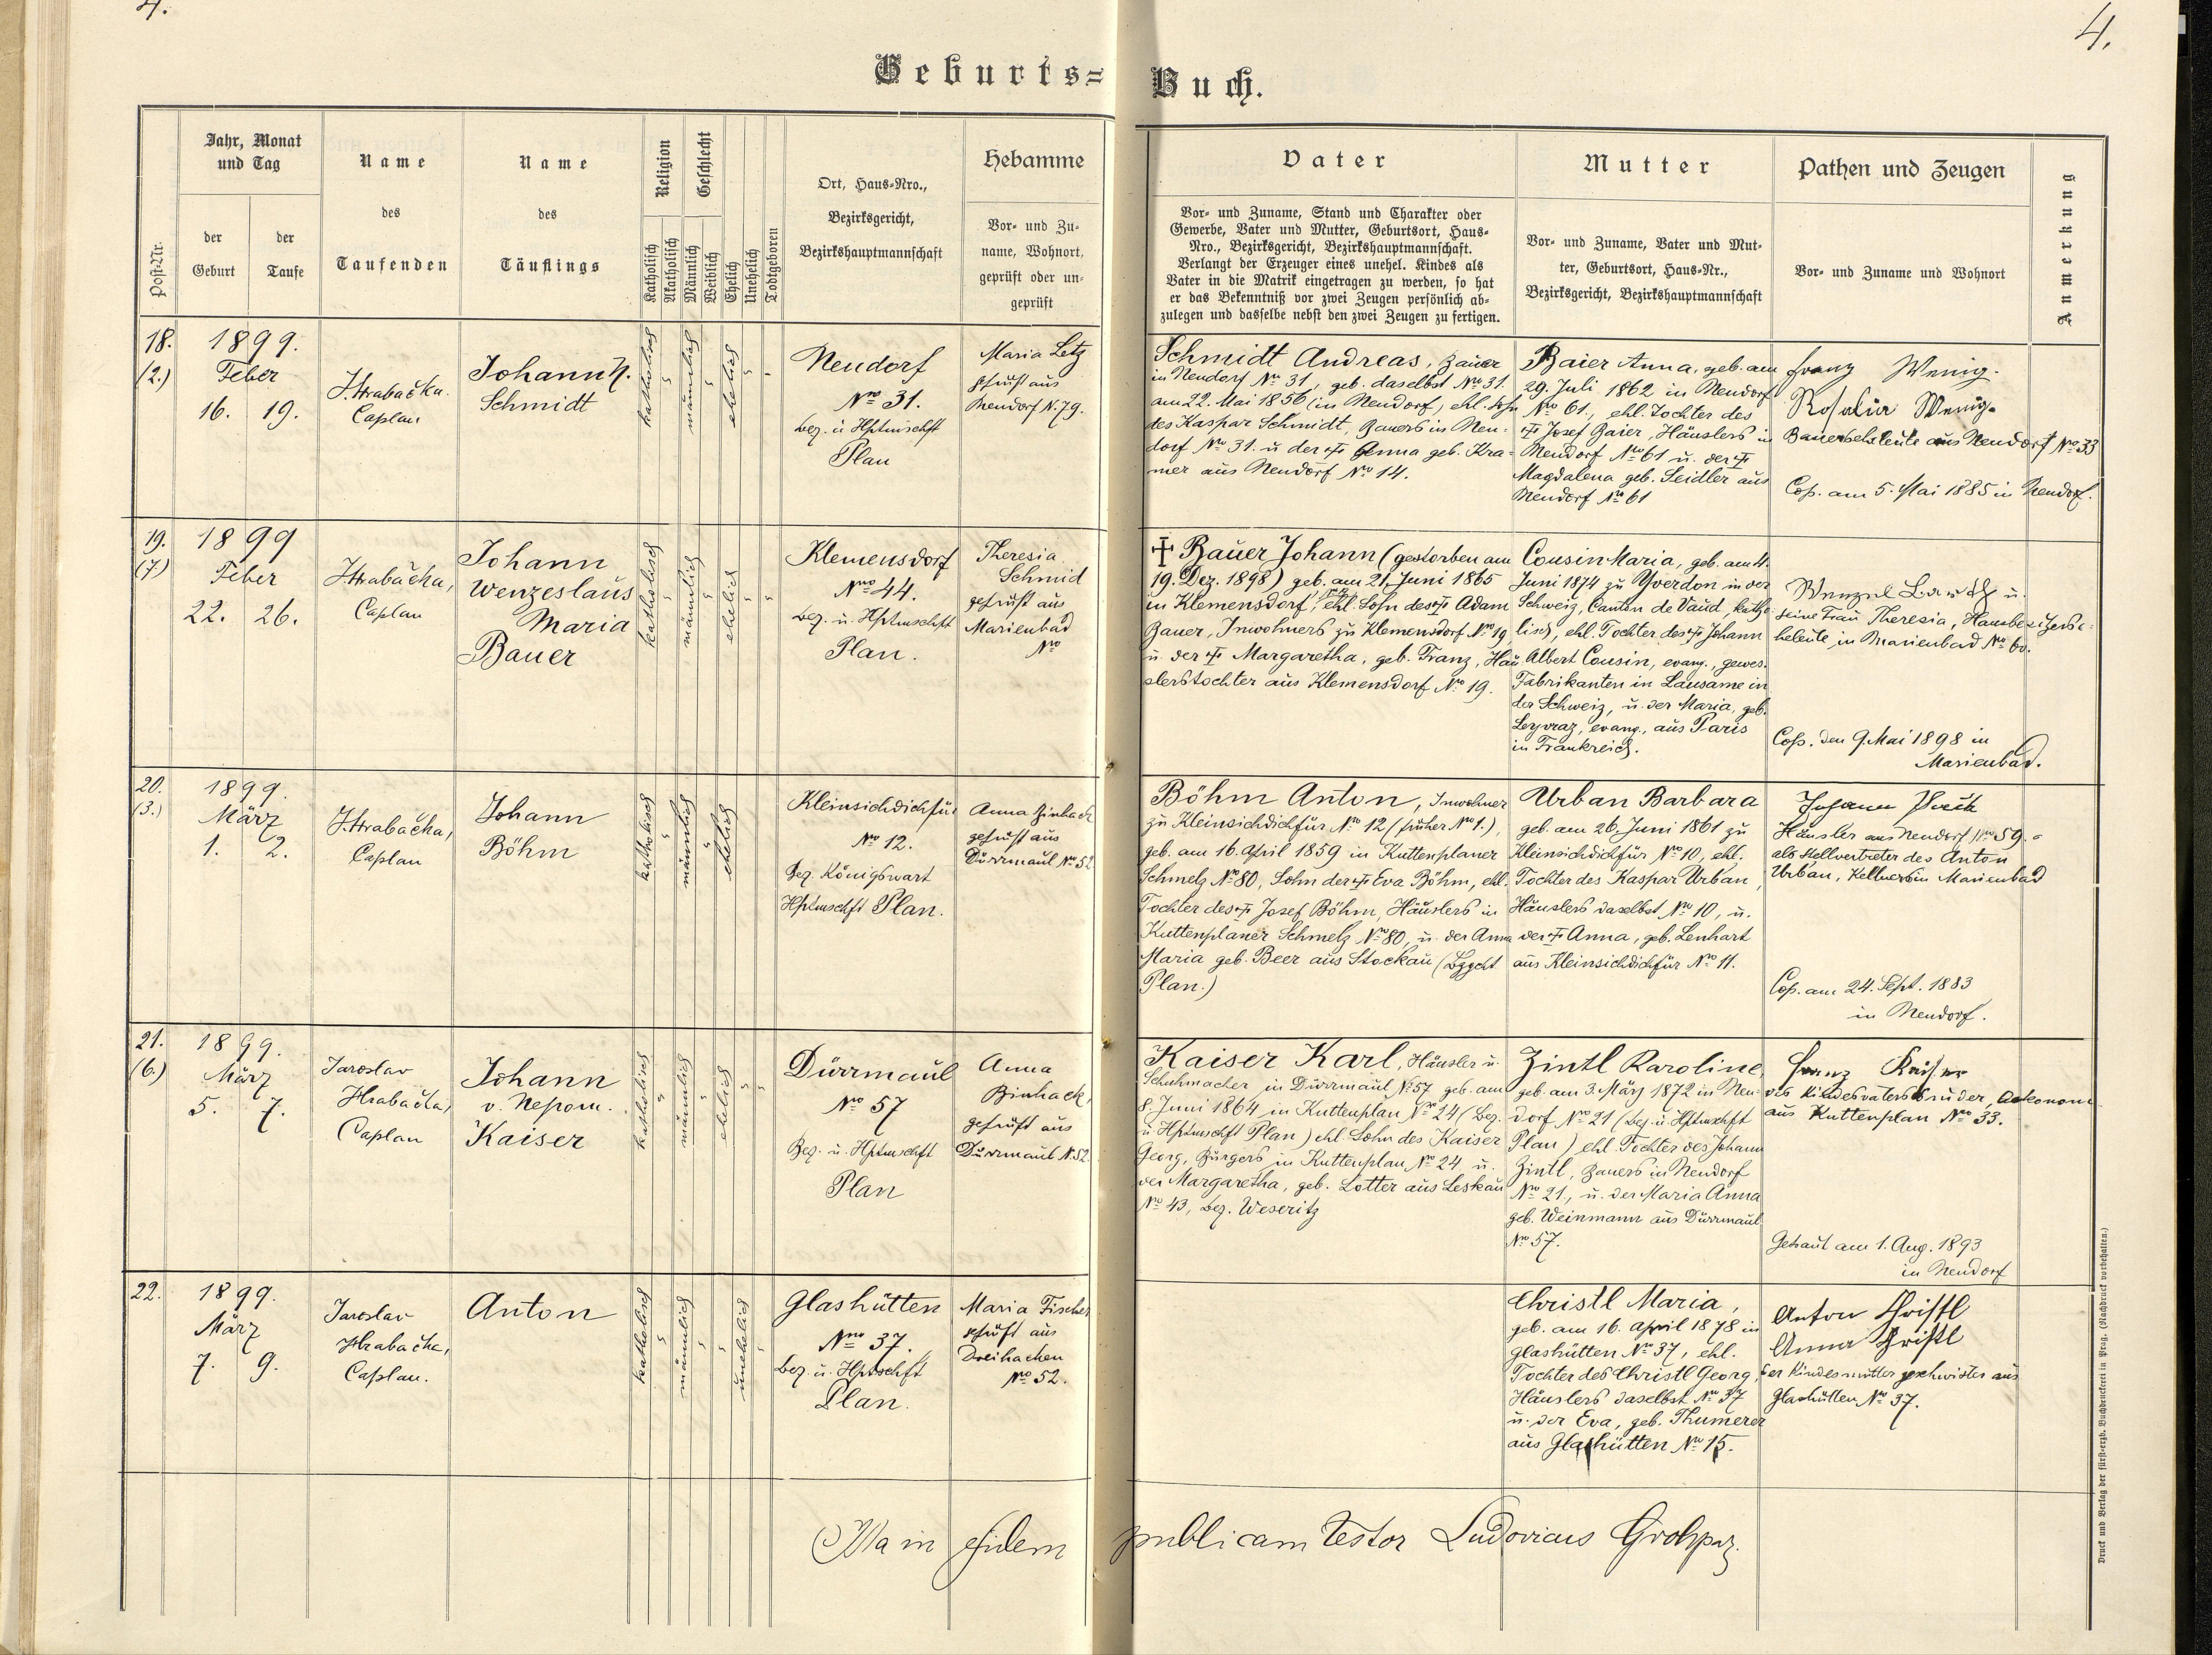 4.
4.
Geburts=Buch.
Post-Nr.
Jahr, Monat
und Tag
der
Geburt
der
Taufe
Name
des
Taufenden
Name
des
Täuflings
Religion
Katholisch
Akatholisch
Geschlecht
Männlich
Weiblich
Ehelich
Unehelich
Todtgeboren
Ort, Haus-Nro.,
Bezirksgericht,
Bezirkshauptmannschaft
Hebamme
Vor- und Zu-
name, Wohnort,
geprüft oder un-
geprüft
Vater
Vor- und Zuname, Stand und Charakter oder
Gewerbe, Vater und Mutter, Geburtsort, Haus-
Nro., Bezirksgericht, Bezirkshauptmannschaft.
Verlangt der Erzeuger eines unehel. Kindes als
Vater in die Matrik eingetragen zu werden, so hat
er das Bekenntniß vor zwei Zeugen persönlich ab-
zulegen und dasselbe nebst den zwei Zeugen zu fertigen.
Mutter
Vor- und Zuname, Vater und Mut-
ter, Geburtsort, Haus-Nr.,
Bezirksgericht, Bezirkshauptmannschaft
Pathen und Zeugen
Vor- und Zuname und Wohnort
Anmerkung
18.
(2.)
1899.
Feber
16. 19.
J. Hrabačka.
Caplan
Johann N.
Schmidt
katholisch
männlich
ehelich
Neudorf
Nro 31.
Bez. u Hptmschft
Plan
Maria Letz
geprüft aus
Neudorf N. 79.
Schmidt Andreas, Bauer
in Neudorf No 31, geb. daselbst No 31.
am 22. Mai 1856 (in Neudorf) ehl. Sohn
des Kaspar Schmidt, Bauers in Neu-
dorf No 31. u der † Anna geb. Kra-
mer aus Neudorf No 14.
Baier Anna, geb. am
29. Juli 1862 in Neudorf
No 61., ehl. Tochter des
† Josef Baier, Häuslers in
Neudorf No 61 u. der †
Magdalena geb. Seidler aus
Neudorf No 61
Franz Wenig.
Rosalia Wenig.
Bauerseheleute aus Neudorf No 33
Cop. am 5. Mai 1885 in Neudorf.
19.
(7)
1899
Feber
22. 26.
Hrabačka,
Caplan
Johann
Wenzeslaus
Maria
Bauer
katholisch
männlich
ehelich
Klemensdorf
Nro 44.
Bez. u. Hptmschft
Plan.
Theresia
Schmid
geprüft aus
Marienbad
No
† Bauer Johann (gestorben am
19. Dez. 1898) geb. am 21. Juni 1865
in Klemensdorf, ehl. Sohn des † Adam
Bauer, Inwohners zu Klemensdorf No 19
u. der † Margaretha, geb. Franz, Häu-
slerstochter aus Klemensdorf No 19.
Cousin Maria, geb. am 4.
Juni 1874 zu Yverdon in der
Schweiz, Canton de Vaud, katho-
lisch, ehl. Tochter des † Johann
Albert Cousin, evang., gewes.
Fabrikanten in Lausanne in
der Schweiz, u. der Maria, geb.
Leyvraz, evang., aus Paris
in Frankreich.
Wenzel u.
seine Frau Theresia, Hausbesitzerse-
heleute in Marienbad No 60.
Cop. den 9. Mai 1898 in
Marienbad.
20.
(3.)
1899.
März
1. 2.
J. Hrabačka,
Caplan
Johann
Böhm
katholisch
männlich
ehelich
Kleinsichdichfür
No 12.
Bez. Königswart
Hptmschft Plan.
Anna Binhack
geprüft aus
Dürrmaul No 52
Böhm Anton, Inwohner
zu Kleinsichdichfür No 12 (früher No 1.),
geb. am 16. April 1859 in Kuttenplaner
Schmelz No 80, Sohn der † Eva Böhm, ehl.
Tochter des † Josef Böhm, Häuslers in
Kuttenplaner Schmelz No 80, u. der Anna
Maria geb. Beer aus Stockau (Bzgcht
Plan.)
Urban Barbara
geb. am 26. Juni 1861 zu
Kleinsichdichfür No 10, ehl.
Tochter des Kaspar Urban,
Häuslers daselbst No 10, u.
der † Anna, geb. Lenhart
aus Kleinsichdichfür No 11.
Johann
Häusler aus Neudorf No 59.
als Stellvertreter des Anton
Urban, Kellners in Marienbad
Cop. am 24. Sept. 1883
in Neudorf.
21.
(6.)
1899.
März
5. 7.
Jaroslav
Hrabačka,
Caplan
Johann
v. Nepom.
Kaiser
katholisch
männlich
ehelich
Dürrmaul
No 57
Bez. u. Hptmschft
Plan
Anna
Binhack,
geprüft aus
Dürrmaul N. 52.
Kaiser Karl, Häusler u.
Schuhmacher in Dürrmaul No 57 geb. am
8. Juni 1864 in Kuttenplan No 24 (Bez.
u. Hptmschft Plan) ehl. Sohn des Kaiser
Georg, Bürgers in Kuttenplan No 24 u.
der Margaretha, geb. Lotter aus Leskau
No 43, Bez. Weseritz
Zintl Karoline,
geb. am 3. März 1872 in Neu-
dorf No 21 (Bez. u Hptmschft
Plan) ehl. Tochter des Johann
Zintl, Bauers in Neudorf
No 21, u. der Maria Anna
geb. Weinmann aus Dürrmaul
No 57.
Franz Kaiser
des Kindesvaters Bruder, Oekonom
aus Kuttenplan No 33.
Getraut am 1. Aug. 1893
in Neudorf
22.
1899.
März
7. 9.
Jaroslav
Hrabačka,
Caplan.
Anton
katholisch
männlich
unehelich
Glashütten
Nro 37.
Bez. u. Hptschft
Plan.
Maria Fischer
geprüft aus
Dreihacken
No 52.
Christl Maria,
geb. am 16. April 1878 in
Glashütten No 37, ehl.
Tochter des Christl Georg
Häuslers daselbst No 37
u. der Eva, geb. Thumerer
aus Glashütten No 15.
Anton Christl
Anna Christl
der Kindesmutter Geschwister aus
Glashütten No 37.
fidem publicam testor Ludovicus
Druck und Verlag der fürst-erzb. Buchdruckerei in Prag. (Nachdruck vorbehalten.)